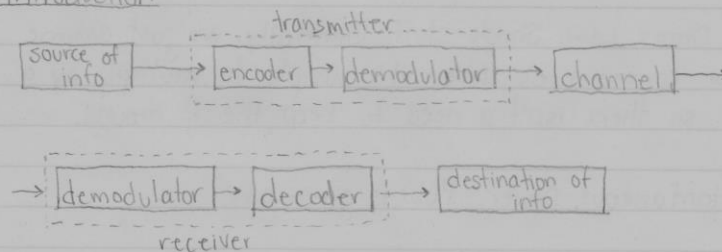 transmitter
source of
info
encoder
demodulator
channel
demodulator
decoder
destination of
info
receiver